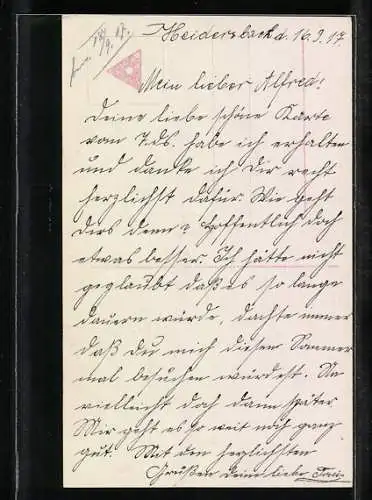 Heidersbach d. 16.9.17.
Mein lieber Alfred!
Deine liebe schöne Karte
vom 7. ds. habe ich erhalten
und danke ich Dir recht
herzlichst dafür. Wie geht
Dirs denn? Hoffentlich doch
etwas besser. Ich hätte nicht
geglaubt daß es so lange
dauern würde, dachte immer
daß du mich diesen Sommer
mal besuchen würdest. Na
vielleicht doch dann später
Mir geht es so weit noch ganz
gut. Mit den herzlichsten
Grüßen deine liebe